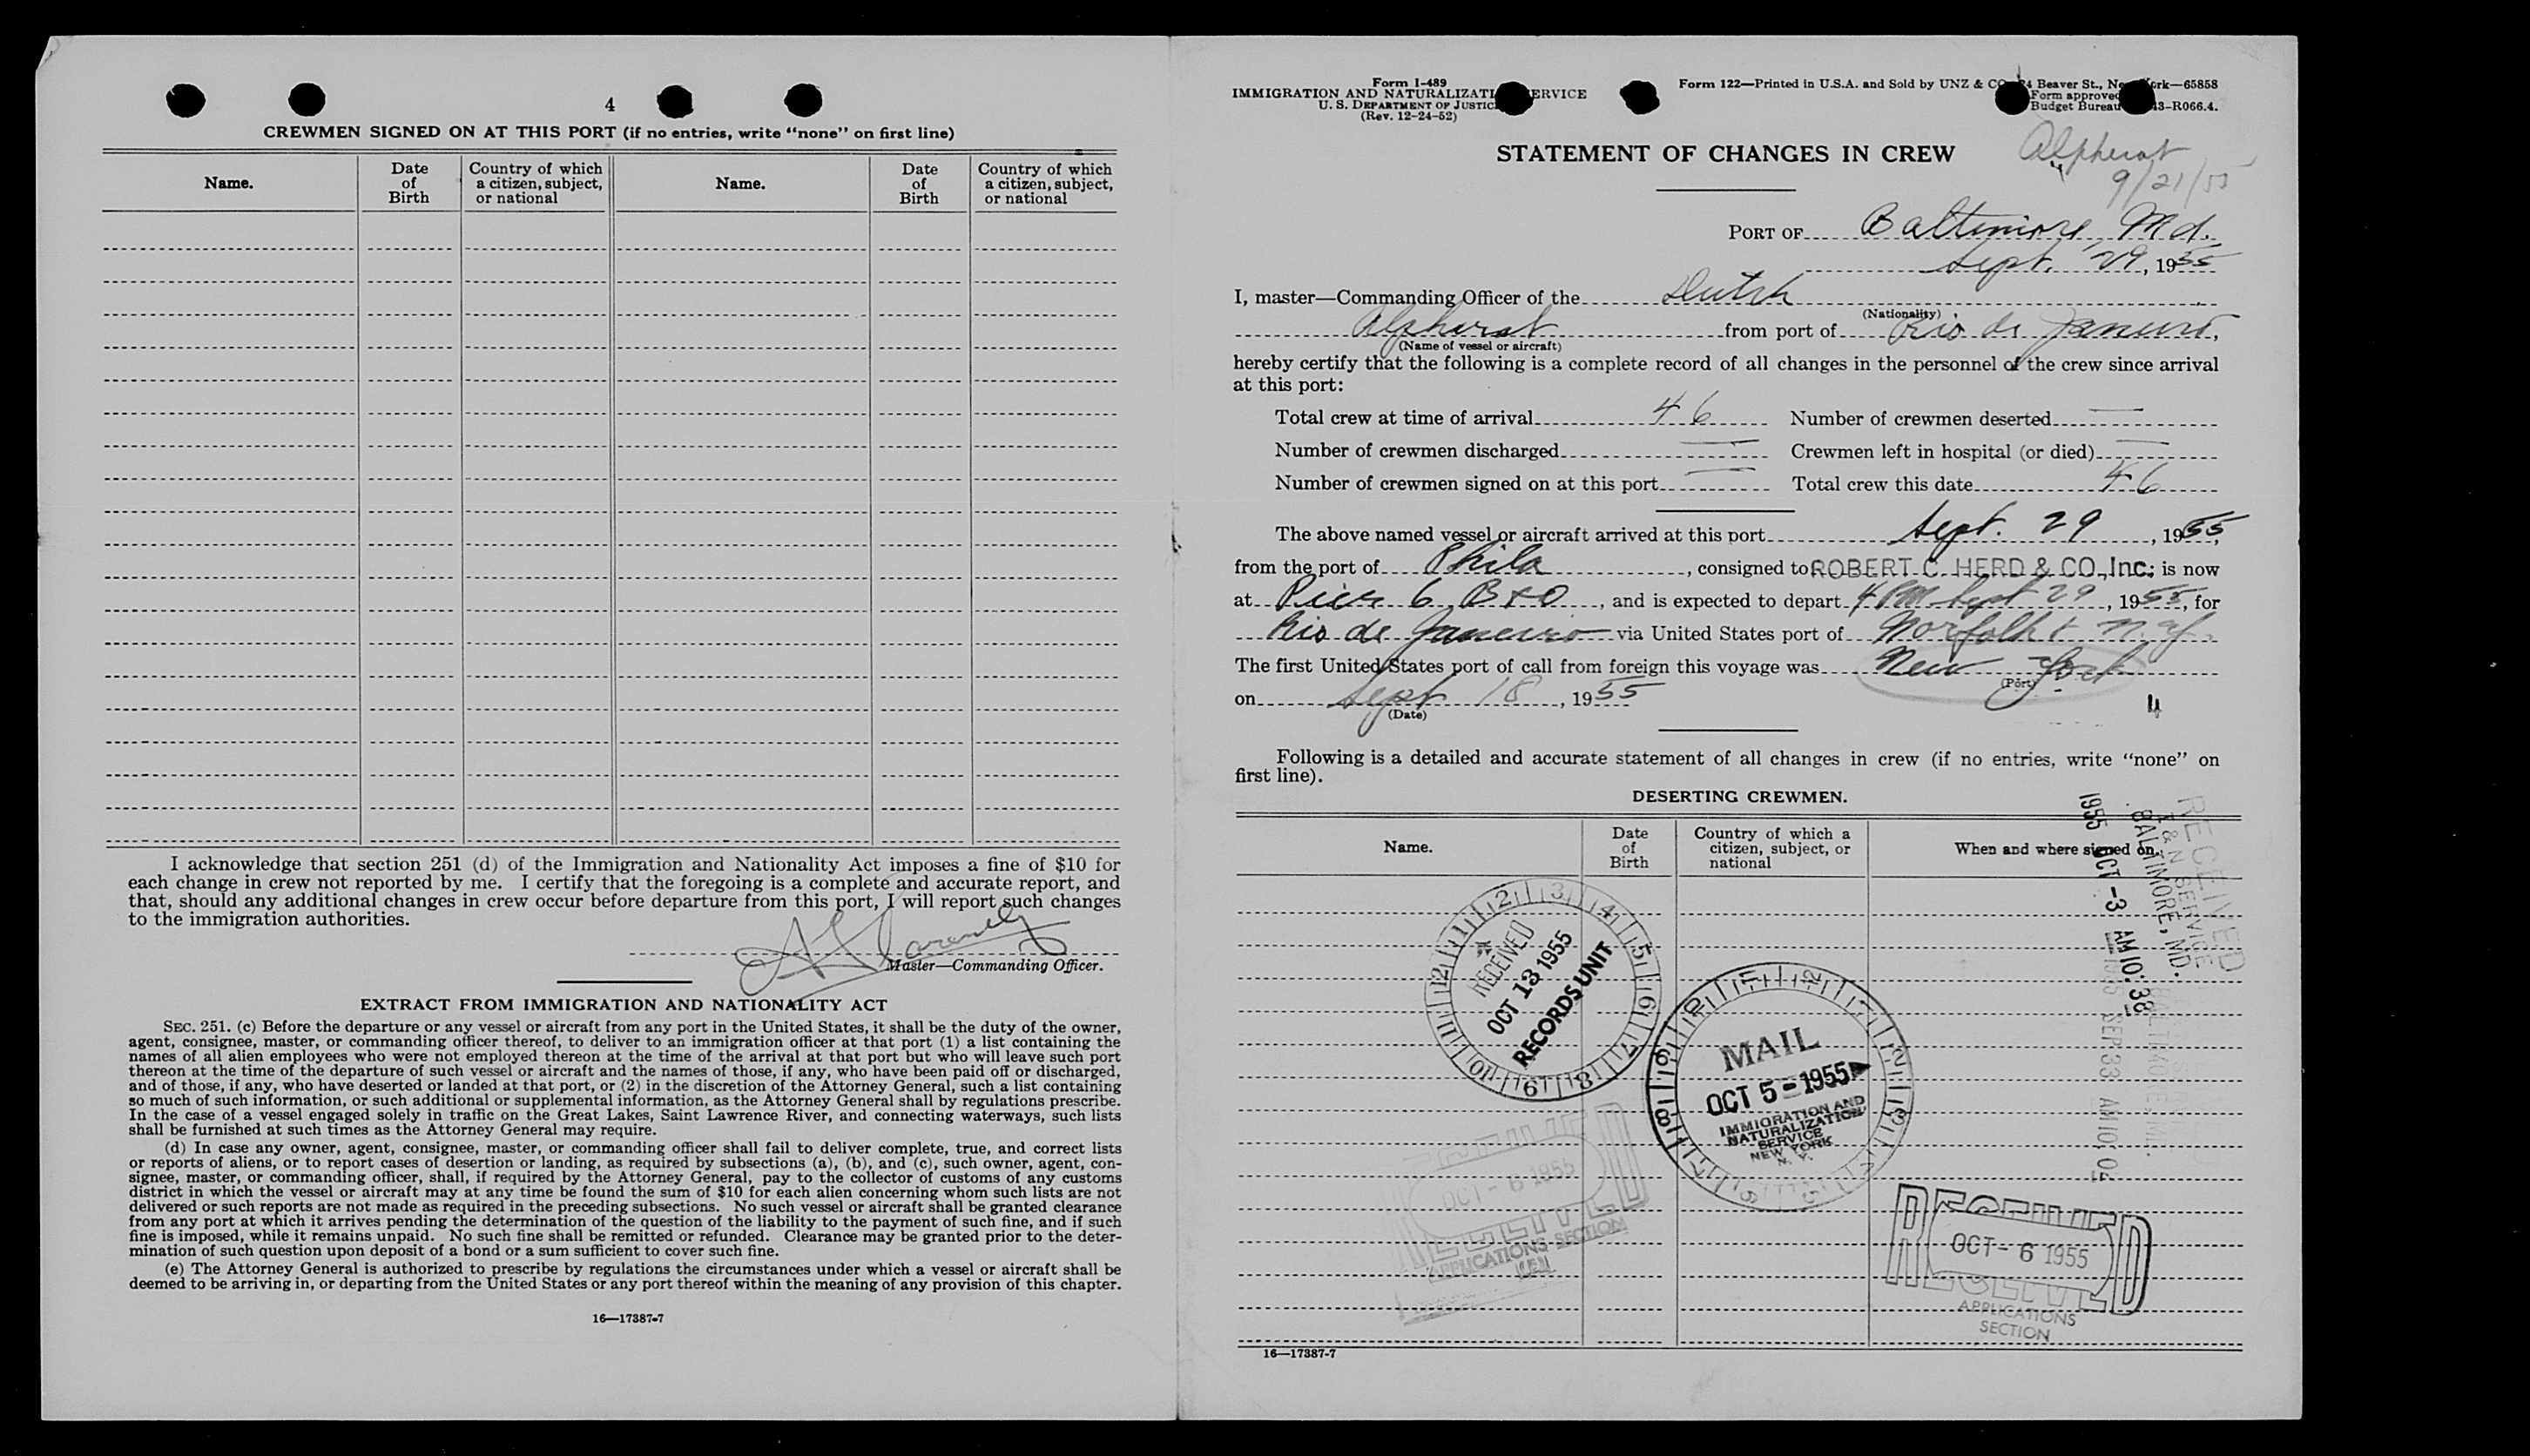 4
CREWMEN SIGNED ON AT THIS PORT (if no entries, write "none" on first line)
Name.
Date of Birth
Country of which a citizen, subject, or national
Name.
Date of Birth
Country of which a citizen, subject, or national
I acknowledge that section 251 (d) of the Immigration and Nationality Act imposes a fine of $10 for
each change in crew not reported by me. I certify that the foregoing is a complete and accurate report, and
that, should any additional changes in crew occur before departure from this port, I will report such changes
to the immigration authorities.
Master—Commanding Officer.
EXTRACT FROM IMMIGRATION AND NATIONALITY ACT
SEC. 251. (c) Before the departure or any vessel or aircraft from any port in the United States, it shall be the duty of the owner,
agent, consignee, master, or commanding officer thereof, to deliver to an immigration officer at that port (1) a list containing the
names of all alien employees who were not employed thereon at the time of the arrival at that port but who will leave such port
thereon at the time of the departure of such vessel or aircraft and the names of those, if any, who have been paid off or discharged,
and of those, if any, who have deserted or landed at that port, or (2) in the discretion of the Attorney General, such a list containing
so much of such information, or such additional or supplemental information, as the Attorney General shall by regulations prescribe.
In the case of a vessel engaged solely in traffic on the Great Lakes, Saint Lawrence River, and connecting waterways, such lists
shall be furnished at such times as the Attorney General may require.
(d) In case any owner, agent, consignee, master, or commanding officer shall fail to deliver complete, true, and correct lists
or reports of aliens, or to report cases of desertion or landing, as required by subsections (a), (b), and (c), such owner, agent, con-
signee, master, or commanding officer, shall, if required by the Attorney General, pay to the collector of customs of any customs
district in which the vessel or aircraft may at any time be found the sum of $10 for each alien concerning whom such lists are not
delivered or such reports are not made as required in the preceding subsections. No such vessel or aircraft shall be granted clearance
from any port at which it arrives pending the determination of the question of the liability to the payment of such fine, and if such
fine is imposed, while it remains unpaid. No such fine shall be remitted or refunded. Clearance may be granted prior to the deter-
mination of such question upon deposit of a bond or a sum sufficient to cover such fine.
(e) The Attorney General is authorized to prescribe by regulations the circumstances under which a vessel or aircraft shall be
deemed to be arriving in, or departing from the United States or any port thereof within the meaning of any provision of this chapter.
16—17387-7
Form I-489
IMMIGRATION AND NATURALIZATI ERVICE
U. S. DEPARTMENT OF JUSTIC
(Rev. 12-24-52)
Form 122—Printed in U.S.A. and Sold by UNZ & CO Beaver St., Ne rk—65858
Form approved
Budget Bureau 43-R066.4.
STATEMENT OF CHANGES IN CREW
Alpherat
9/21/55
PORT OF Baltimore, Md.
Sept. 29, 1955
I, master—Commanding Officer of the Dutch
(Nationality)
Alpherat from port of Rio de Janeiro,
(Name of vessel or aircraft)
hereby certify that the following is a complete record of all changes in the personnel of the crew since arrival
at this port:
Total crew at time of arrival 46 Number of crewmen deserted —
Number of crewmen discharged — Crewmen left in hospital (or died) —
Number of crewmen signed on at this port — Total crew this date 46
The above named vessel or aircraft arrived at this port Sept. 29, 1955,
from the port of Phila, consigned to ROBERT C. HERD & CO., Inc; is now
at Pier 6 B+O, and is expected to depart 4 PM Sept 29, 1955, for
Rio de Janeiro via United States port of Norfolk + N.Y.
The first United States port of call from foreign this voyage was New York
(Port)
on Sept 18, 1955
(Date)
4
Following is a detailed and accurate statement of all changes in crew (if no entries, write "none" on
first line).
DESERTING CREWMEN.
Name.
Date of Birth
Country of which a citizen, subject, or national
When and where signed on.
RECEIVED
I & N SERVICE
BALTIMORE, MD.
1955 OCT -3 AM 10:38
RECEIVED
OCT 13 1955
RECORDS UNIT
MAIL
OCT 5 - 1955
IMMIGRATION AND
NATURALIZATION
SERVICE
NEW YORK
N. Y.
RECEIVED
OCT - 6 1955
APPLICATIONS SECTION
RECEIVED
OCT - 6 1955
APPLICATIONS
SECTION
16—17387-7